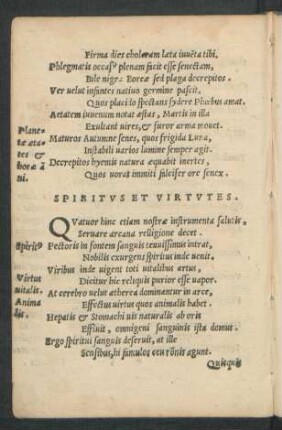 Firma dies choleram lata iuuēta tibi.
Phlegmatis occasꝰ plenam facit esse senectam,
Bile nigra Boreæ sed plaga decrepitos.
Ver uelut infantes natiuo germine pascit,
Quos placido spectans sydere Phœbus amat.
Aetatem iuuenum notat æstas, Martis in illa
Exultant uires, & furor arma mouet.
Maturos Autumne senes, quos frigida Luna,
Instabili uarios lumine semper agit.
Decrepitos hyemis natura æquabit inertes,
Quos uorat immiti falcifer ore senex.
Planetæ ætates & horæ āni.
SPIRITVS ET VIRTVTES.
QVatuor hinc etiam nostræ instrumenta salutis,
Seruare arcana relligione decet.
Spiritꝰ
Pectoris in fontem sanguis tenuissimus intrat,
Nobilis exurgens spiritus inde uenit.
Viribus inde uigent toti uitalibus artus,
Dicitur hic reliquis purior esse uapor.
Virtus uitalis.
At cerebro uelut ætherea dominantur in arce,
Effectus uirtus quos animalis habet.
Animalis.
Hepatis & Stomachi uis naturalis ab oris
Effluit, omnigeni sanguinis ista domus.
Ergo spiritui sanguis deseruit, at ille
Sensibus, hi famulos ceu rōnis agunt.
Quisquis